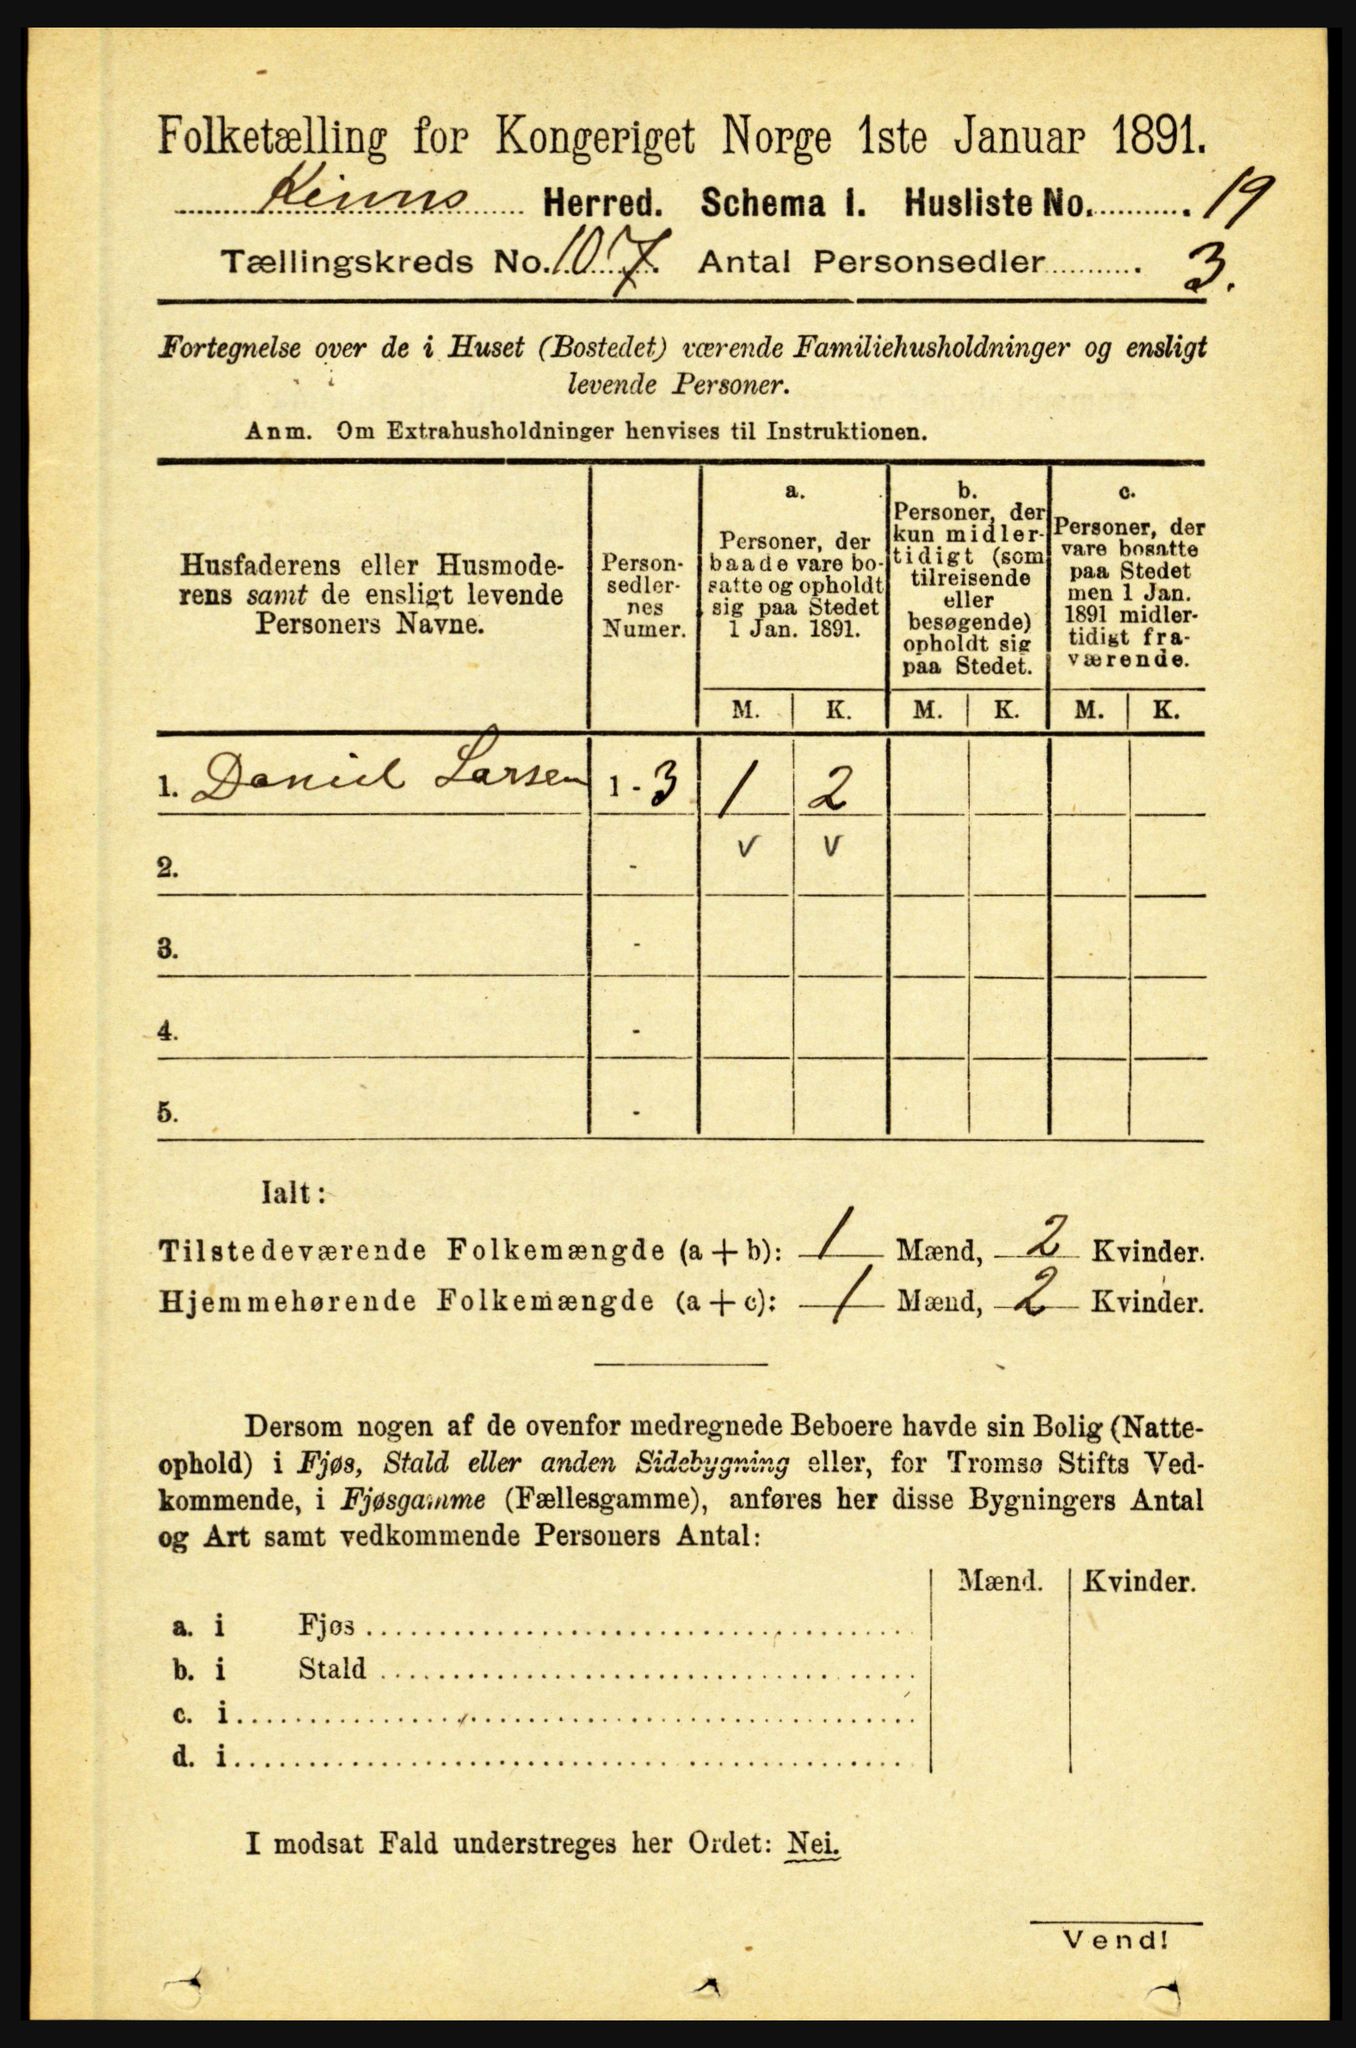 Folketælling for Kongeriget Norge 1ste Januar 1891.
Kinns Herred. Schema I. Husliste No. 19
Tællingskreds No. 107. Antal Personsedler 3.
Fortegnelse over de i Huset (Bostedet) værende Familiehusholdninger og ensligt
levende Personer.
Anm. Om Extrahusholdninger henvises til Instruktionen.
Husfaderens eller Husmode-
rens samt de ensligt levende
Personers Navne.
Person-
sedler-
nes
Numer.
a.
Personer, der
baade vare bo-
satte og opholdt
sig paa Stedet
1 Jan. 1891.
b.
Personer, der
kun midler-
tidigt (som
tilreisende
eller
besøgende)
opholdt sig
paa Stedet.
c.
Personer, der
vare bosatte
paa Stedet
men 1 Jan.
1891 midler-
tidigt fra-
værende.
M. K. M. K. M. K.
1. Daniel Larsen 1-3 1 2
2. - v v
3. -
4. -
5. -
Ialt:
Tilstedeværende Folkemængde (a + b): 1 Mænd, 2 Kvinder.
Hjemmehørende Folkemængde (a + c): 1 Mænd, 2 Kvinder.
Dersom nogen af de ovenfor medregnede Beboere havde sin Bolig (Natte-
ophold) i Fjøs, Stald eller anden Sidebygning eller, for Tromsø Stifts Ved-
kommende, i Fjøsgamme (Fællesgamme), anføres her disse Bygningers Antal
og Art samt vedkommende Personers Antal:
Mænd. Kvinder.
a. i Fjøs
b. i Stald
c. i
d. i
I modsat Fald understreges her Ordet: Nei.
Vend!